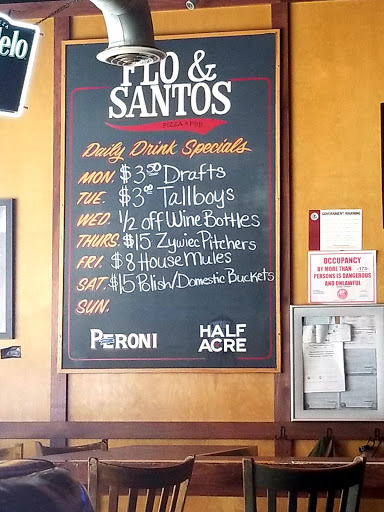 elo
FLO &
SANTOS
PIZZA & PUB
Daily Drink Specials
MON. $3 50 Drafts
TUE. $3 00 Tallboys
WED. 1/2 off Wine Bottles
THURS. $15 Zywiec Pitchers
FRI. $8 House Mules
SAT. $15 Polish/Domestic Buckets
SUN.
PERONI
HALF
ACRE
GOVERNMENT WARNING
OCCUPANCY
BY MORE THAN 173
PERSONS IS DANGEROUS
AND UNLAWFUL